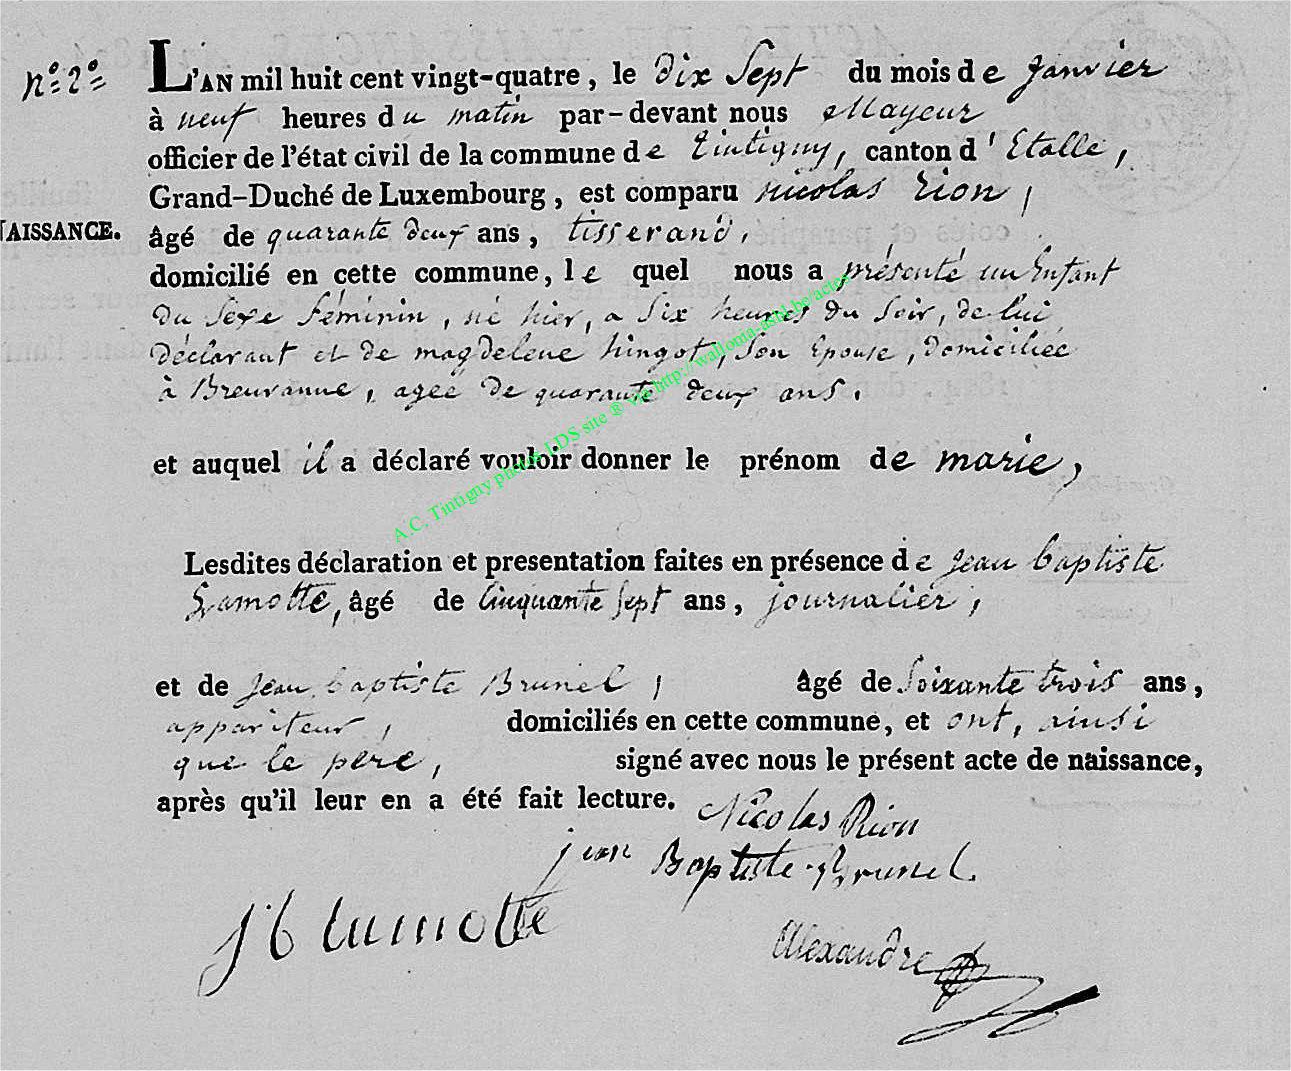 n.º 2.º
L'AN mil huit cent vingt-quatre, le dix sept du mois de janvier
à neuf heures du matin par-devant nous Mayeur
officier de l'état civil de la commune de tintigny, canton d'Etalle,
Grand-Duché de Luxembourg, est comparu nicolas rion,
NAISSANCE. âgé de quarante deux ans, tisserand,
domicilié en cette commune, le quel nous a présenté un Enfant
du Sexe féminin, né hier, a six heures du soir, de lui
déclarant et de magdelene hingot, son Epouse, domiciliée
à Breuvanne, agée de quarante deux ans.
et auquel il a déclaré vouloir donner le prénom de marie,
Lesdites déclaration et presentation faites en présence de jean baptiste
Lamotte, âgé de cinquante sept ans, journalier,
et de jean baptiste Brunel, âgé de soixante trois ans,
appariteur, domiciliés en cette commune, et ont, ainsi
que le pere, signé avec nous le présent acte de naissance,
après qu'il leur en a été fait lecture.
Nicolas Rion
jean Baptiste Brunel.
J b lamotte
Alexandre
A.C. Tintigny photos LDS site ® via http://wallonia-asbl.be/actes